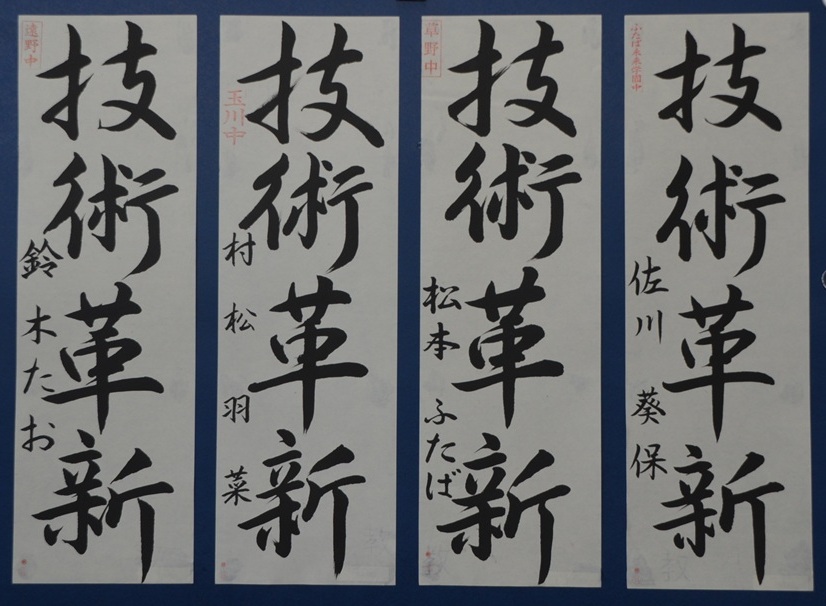 技術革新
ふたば未来学園中
佐川葵保
技術革新
草野中
松本ふたば
技術革新
玉川中
村松羽菜
技術革新
遠野中
鈴木たお